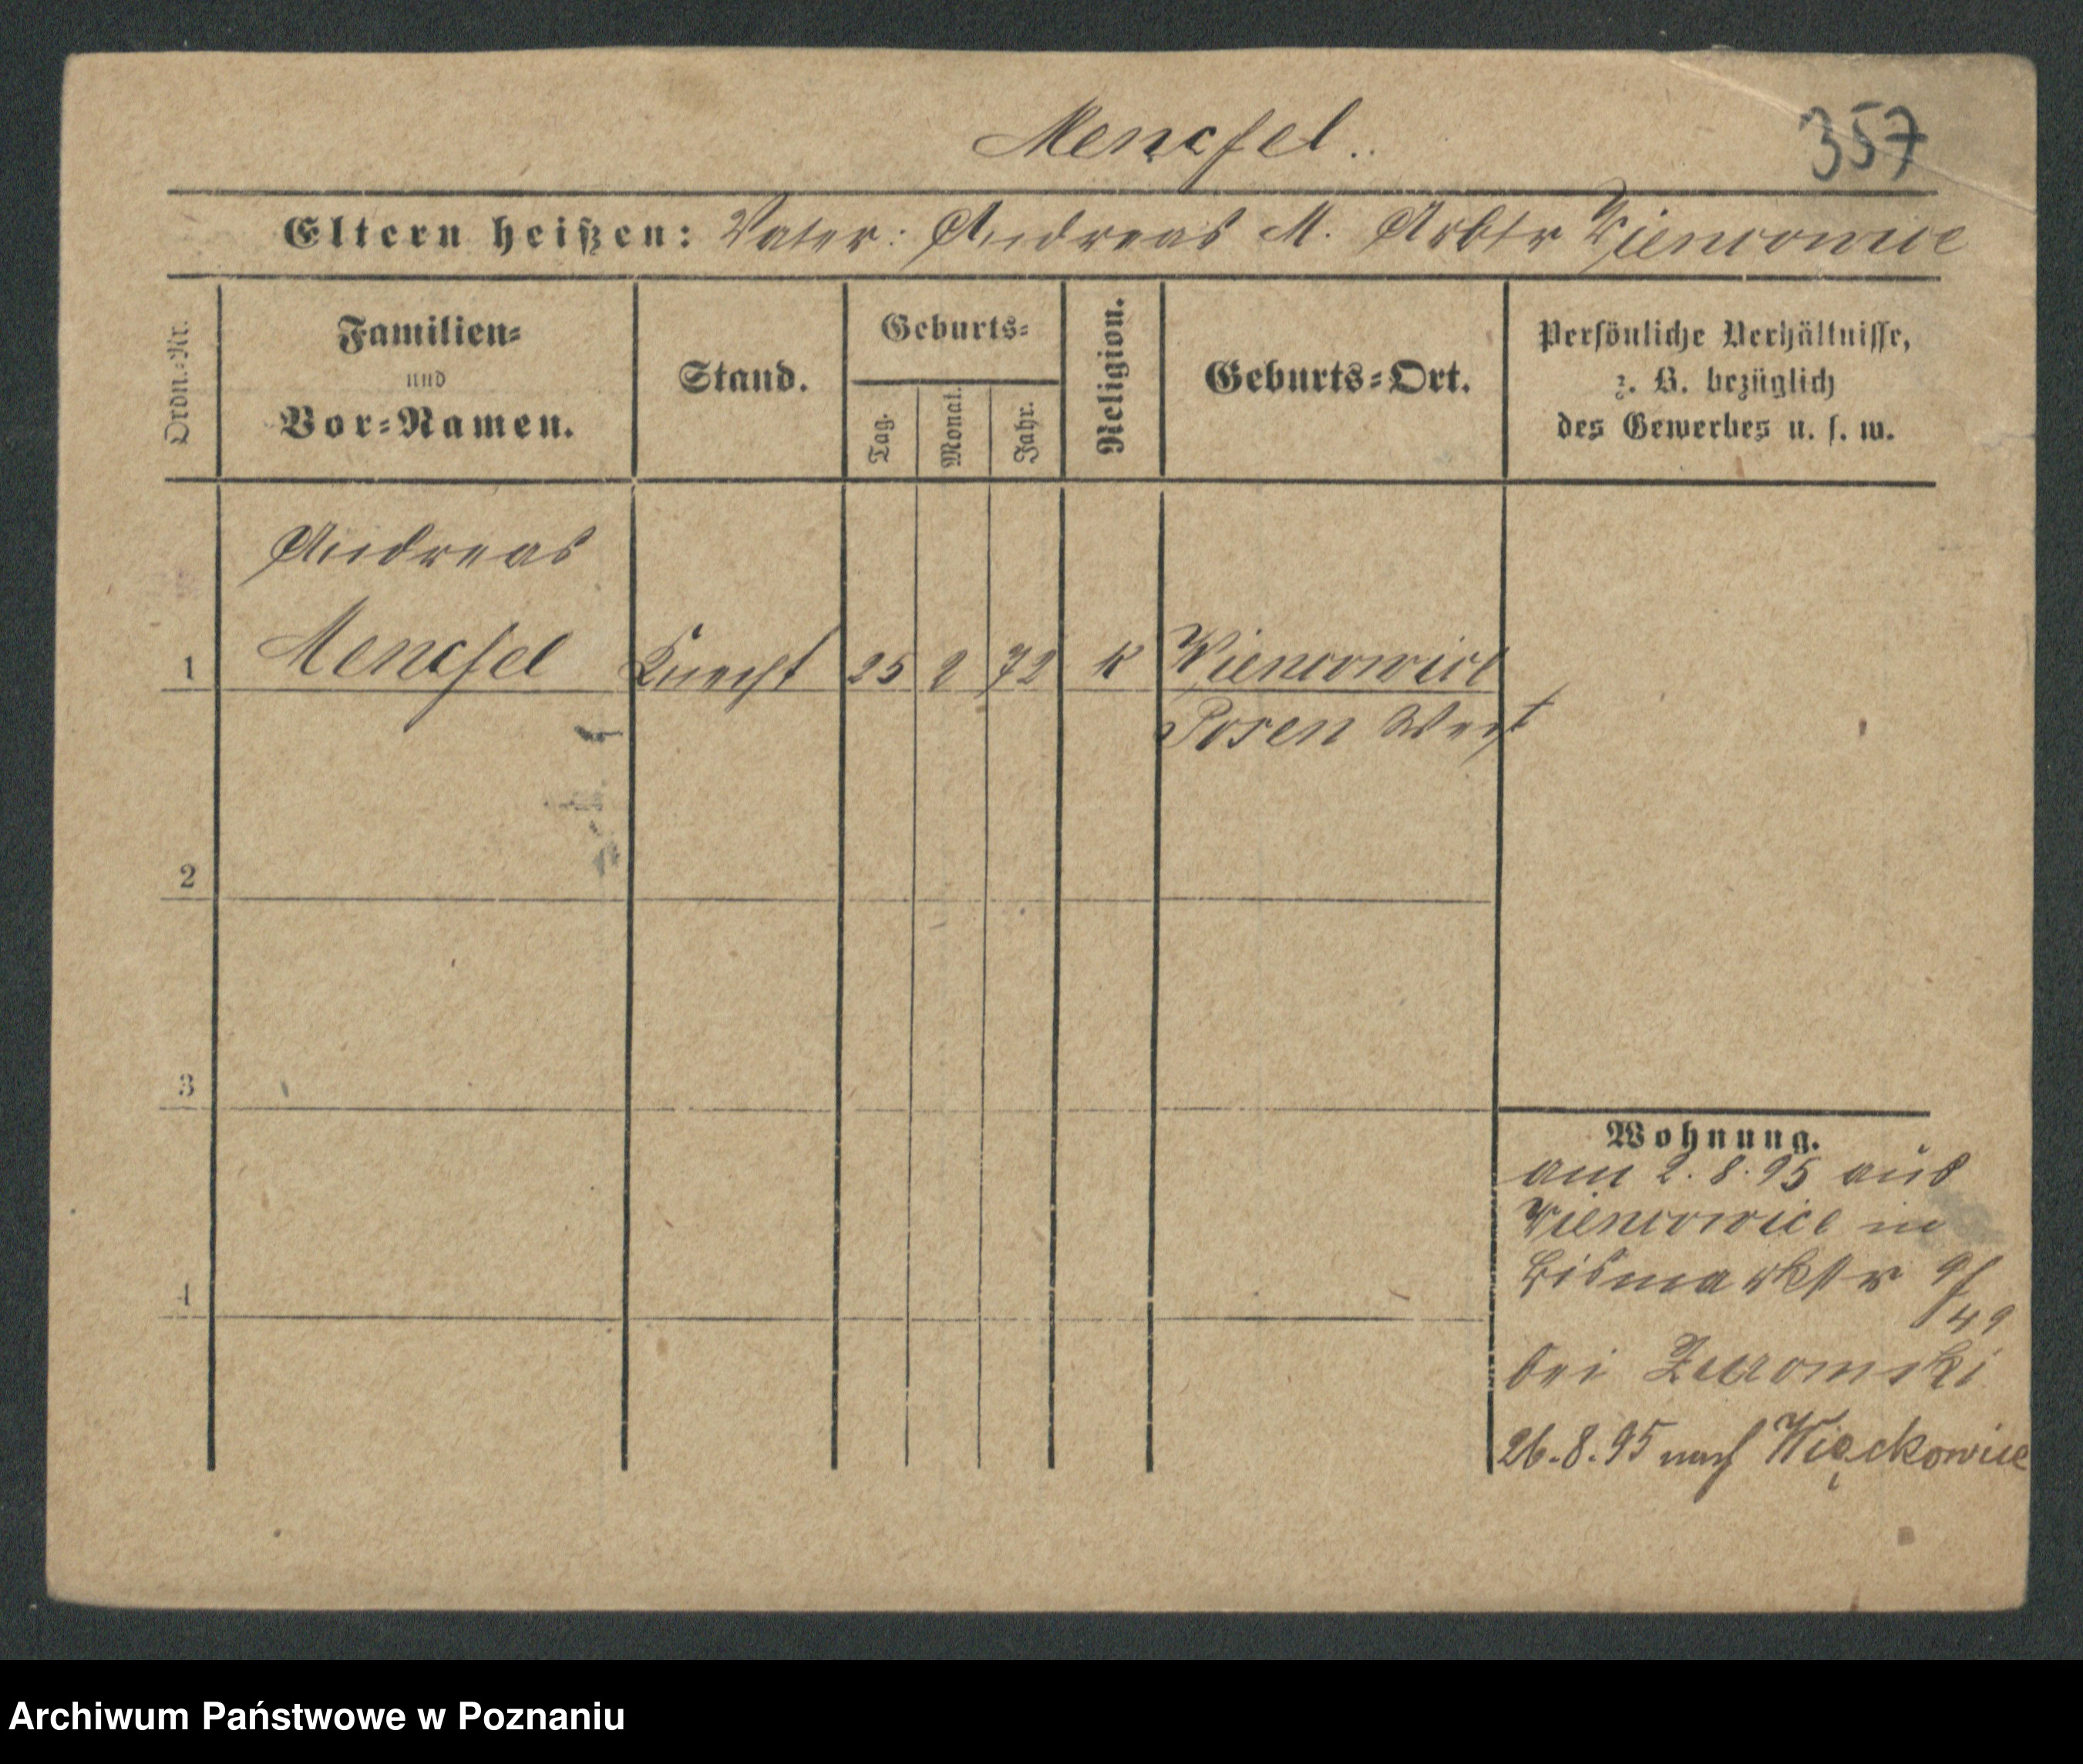 Mencfel..
357
Eltern heißen: Vater: Andreas M. Arbtr Wiencowice
Ordn.-Nr.
Familien-
und
Vor-Namen.
Stand.
Geburts-
Tag.
Monat.
Jahr.
Religion.
Geburts-Ort.
Persönliche Verhältnisse,
z. B. bezüglich
des Gewerbes u. s. w.
Andreas
1 Mencfel Knecht 25 2 72 K Wiencowice
Posen West
2
3
4
Wohnung.
am 2.8.95 aus
Wiencowice in
Bismarkstr 9/49
bei Zuromski
26.8.95 nach Więckowice
Archiwum Państwowe w Poznaniu